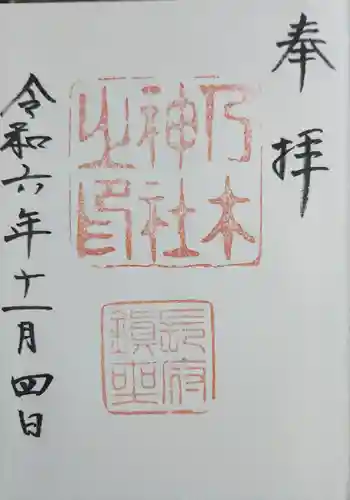 奉拝
乃木
神社
之印
長府
鎮聖
令和六年十一月四日